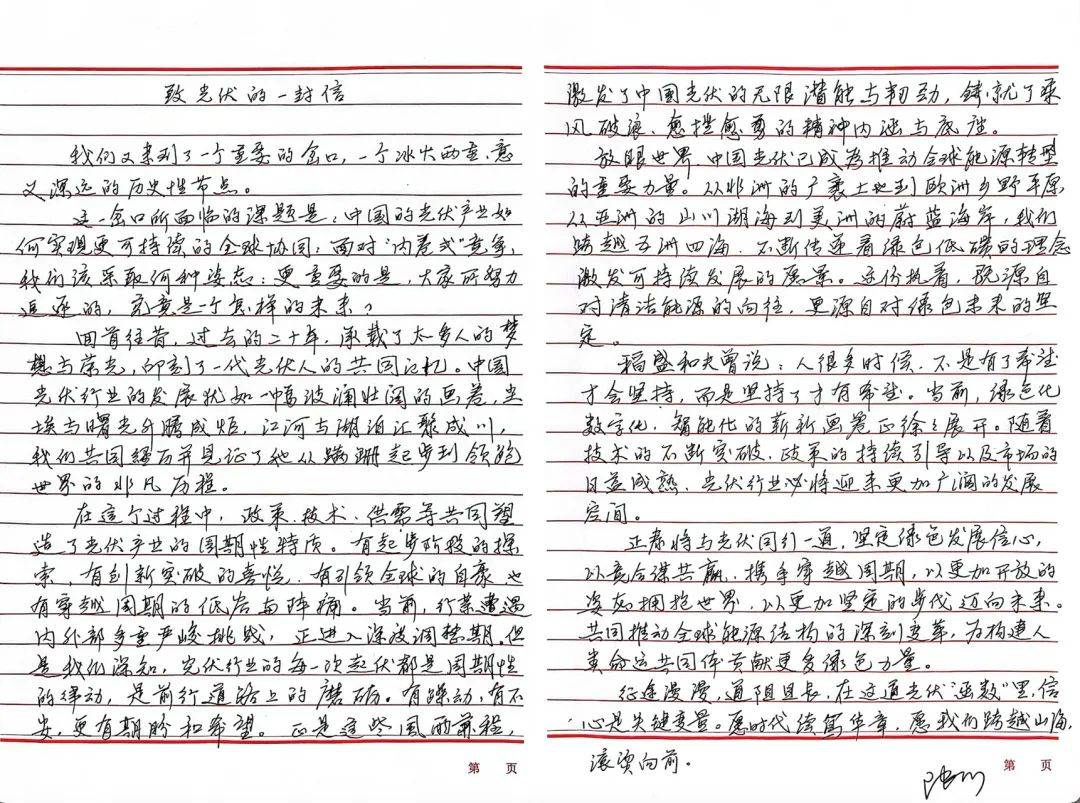 致光伏的一封信
我们又来到了一个重要的岔口,一个冰火两重、意
义深远的历史性节点。
这一岔口所面临的课题是:中国的光伏产业如
何实现更可持续的全球协同;面对“内卷式”竞争,
我们该采取何种姿态;更重要的是,大家所努力
追逐的,究竟是一个怎样的未来?
回首往昔,过去的二十年,承载了太多人的梦
想与荣光,印刻了一代光伏人的共同记忆。中国
光伏行业的发展犹如一幅波澜壮阔的画卷,尘
埃与曙光升腾成炬,江河与湖泊汇聚成川,
我们共同经历并见证了他从蹒跚起步到领跑
世界的非凡历程。
在这个过程中,政策、技术、供需等共同塑
造了光伏产业的周期性特质。有起步阶段的探
索,有创新突破的喜悦,有引领全球的自豪,也
有穿越周期的低谷与阵痛。当前,行业遭遇
内外部多重严峻挑战,正进入深度调整期。但
是我们深知,光伏行业的每一次起伏都是周期性
的律动,是前行道路上的磨砺。有躁动,有不
安,更有期盼和希望。正是这些风雨兼程,
激发了中国光伏的无限潜能与韧劲,铸就了乘
风破浪、愈挫愈勇的精神内涵与底座。
放眼世界,中国光伏已成为推动全球能源转型
的重要力量。从非洲的广袤土地到欧洲乡野平原,
从亚洲的山川湖海到美洲的蔚蓝海岸,我们
跨越五洲四海,不断传递着绿色低碳的理念,
激发可持续发展的愿景。这份执着,既源自
对清洁能源的向往,更源自对绿色未来的坚
定。
稻盛和夫曾说:人很多时候,不是有了希望
才会坚持,而是坚持了才有希望。当前,绿色化
数字化、智能化的崭新画卷正徐徐展开。随着
技术的不断突破、政策的持续引导以及市场的
日益成熟,光伏行业必将迎来更加广阔的发展
空间。
正泰将与光伏同行一道,坚定绿色发展信心,
以竞合谋共赢,携手穿越周期,以更加开放的
姿态拥抱世界,以更加坚定的步伐迈向未来。
共同推动全球能源结构的深刻变革,为构建人
类命运共同体贡献更多绿色力量。
征途漫漫,道阻且长,在这道光伏“函数”里,信
心是关键变量。愿时代续写华章,愿我们跨越山海,
滚烫向前。
陆川
第 页
第 页